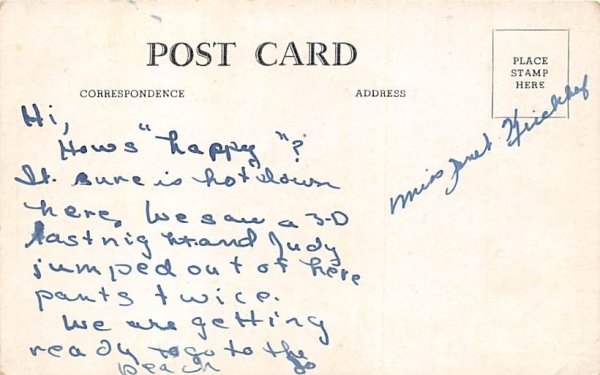 POST CARD
PLACE
STAMP
HERE
CORRESPONDENCE
ADDRESS
Hi,
Hows "happy"?
It sure is hot down
here, We saw a 3-D
last night and Judy
jumped out of here
pants twice.
We are getting
ready to go to the
beach
Miss Janet